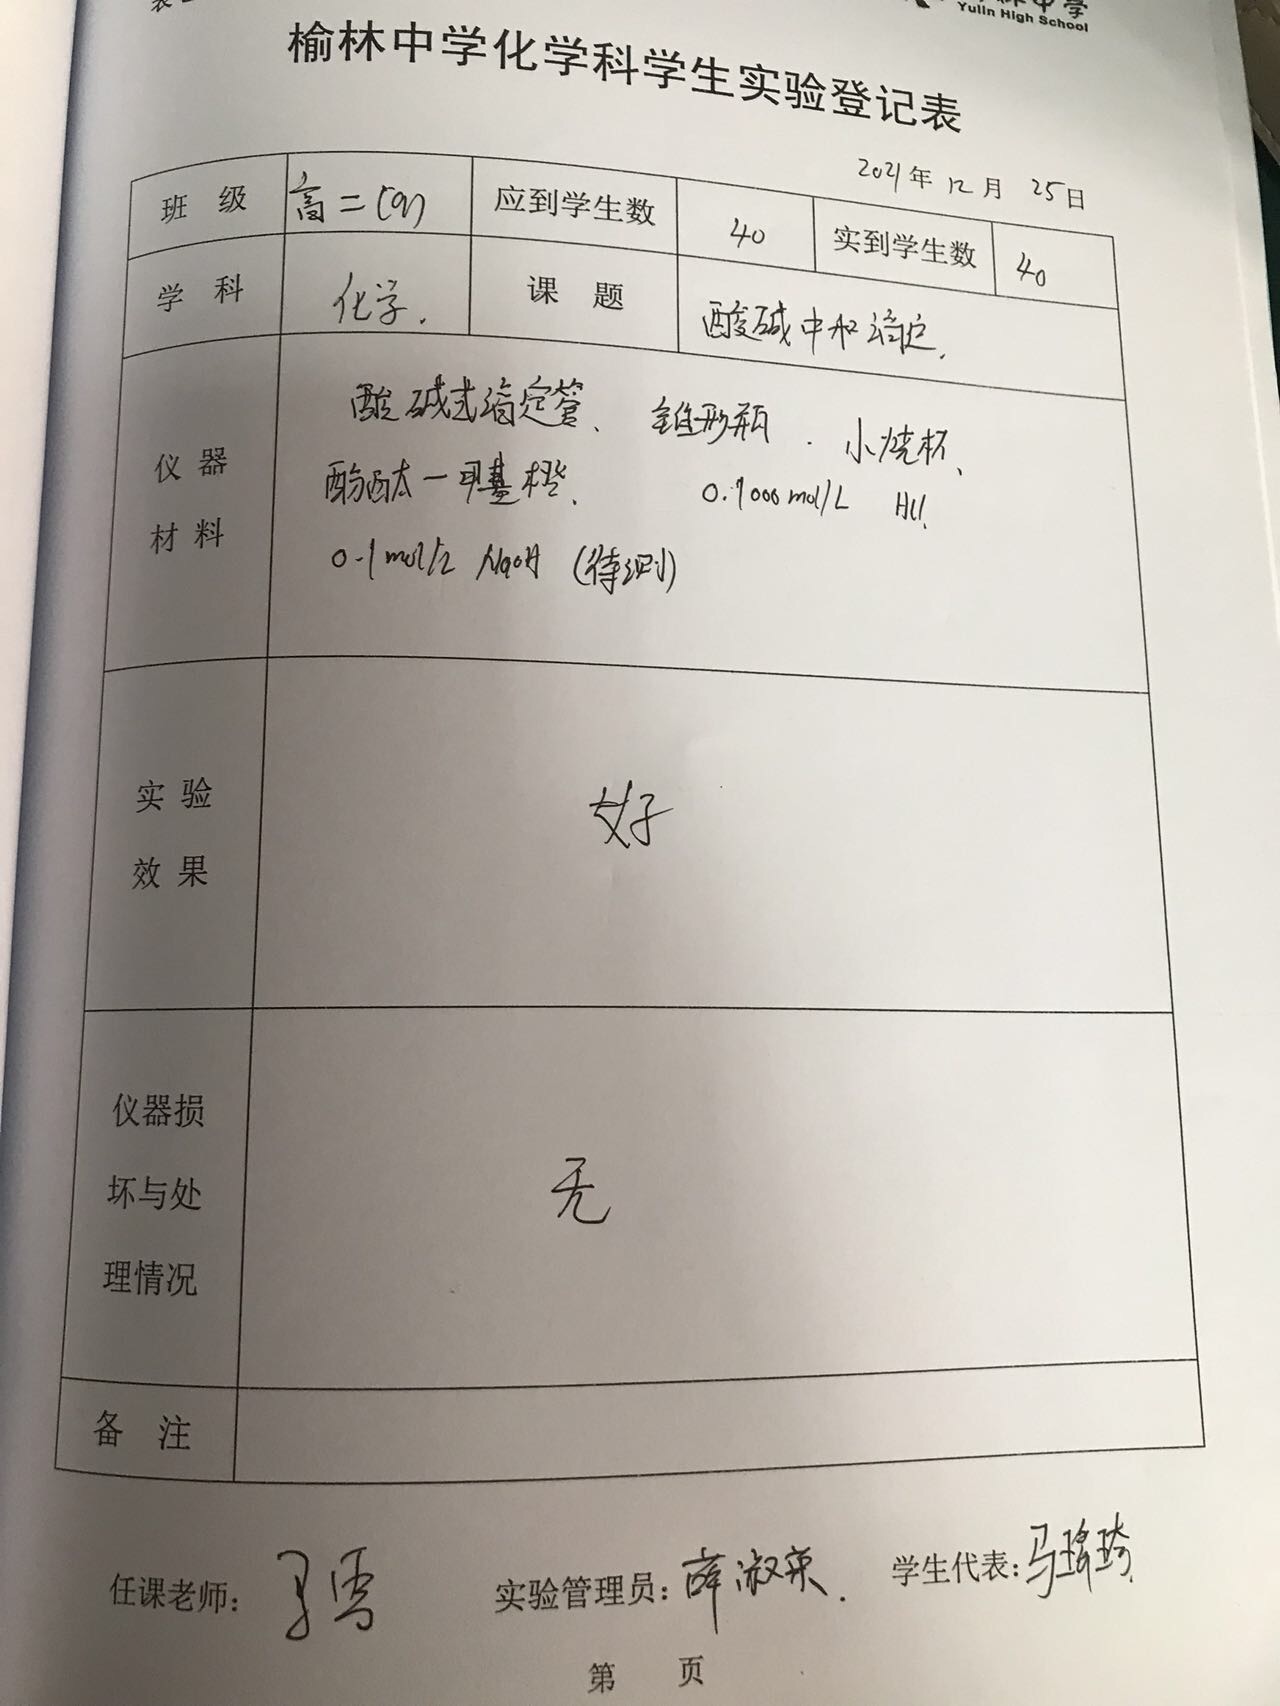 中学
Yulin High School
榆林中学化学科学生实验登记表
2021年12月25日
班级 高二(9) 应到学生数 40 实到学生数 40
学科 化学. 课题 酸碱中和滴定.
仪器材料
酸碱式滴定管、锥形瓶.小烧杯、
酚酞一甲基橙、 0.1000mol/L HCl.
0.1mol/L NaOH (待测)
实验
效果
好
仪器损
坏与处
理情况
无
备注
任课老师: 实验管理员:薛淑英. 学生代表:马瑞琦.
第 页